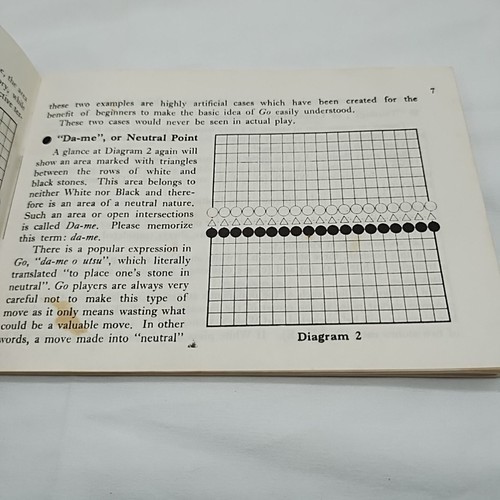 7
these two examples are highly artificial cases which have been created for the
benefit of beginners to make the basic idea of Go easily understood.
These two cases would never be seen in actual play.
"Da-me", or Neutral Point
A glance at Diagram 2 again will
show an area marked with triangles
between the rows of white and
black stones. This area belongs to
neither White nor Black and there-
fore is an area of a neutral nature.
Such an area or open intersections
is called Da-me. Please memorize
this term: da-me.
There is a popular expression in
Go, "da-me o utsu", which literally
translated "to place one's stone in
neutral". Go players are always very
careful not to make this type of
move as it only means wasting what
could be a valuable move. In other
words, a move made into "neutral"
Diagram 2